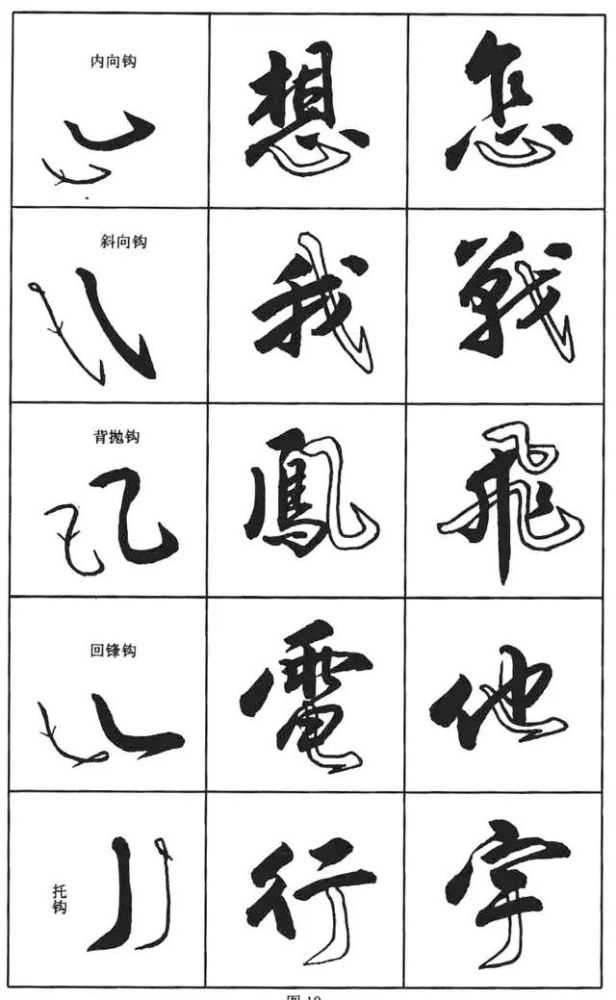 内向钩
想 怎
斜向钩
我 戰
背抛钩
鳳 飛
回锋钩
電 他
托钩
行 宇
图 10